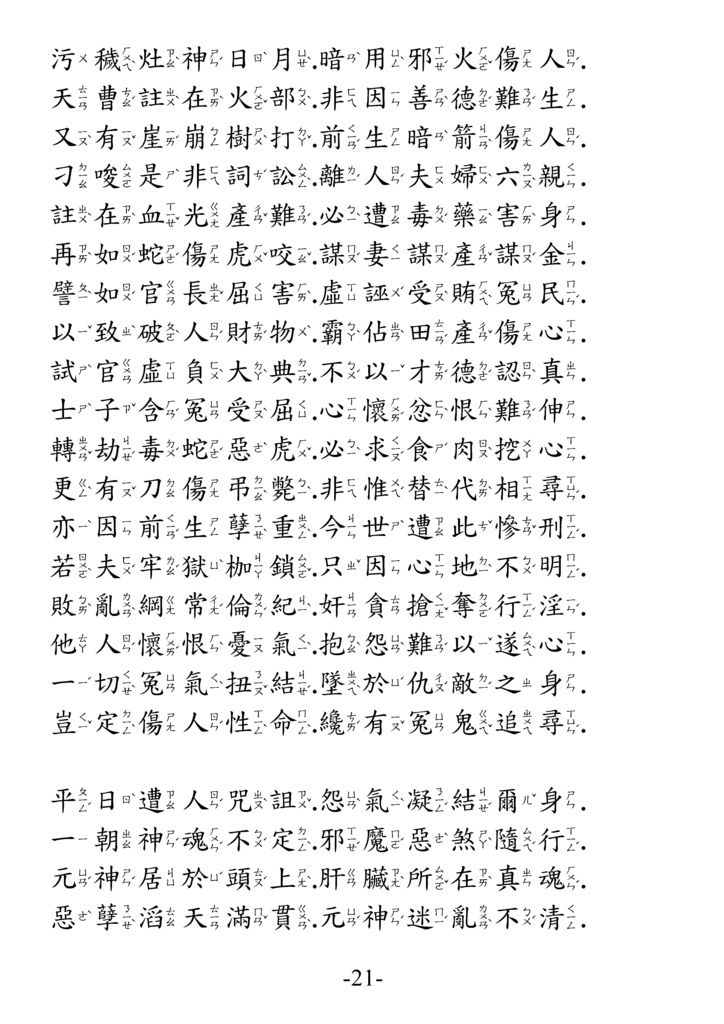 污穢灶神日月.暗用邪火傷人.
天曹註在火部.非因善德難生.
又有崖崩樹打.前生暗箭傷人.
刁唆是非詞訟.離人夫婦六親.
註在血光產難.必遭毒藥害身.
再如蛇傷虎咬.謀妻謀產謀金.
譬如官長屈害.虛誣受賄冤民.
以致破人財物.霸佔田產傷心.
試官虛負大典.不以才德認真.
士子含冤受屈.心懷忿恨難伸.
轉劫毒蛇惡虎.必求食肉挖心.
更有刀傷弔斃.非惟替代相尋.
亦因前生孽重.今世遭此慘刑.
若夫牢獄枷鎖.只因心地不明.
敗亂綱常倫紀.奸貪搶奪行淫.
他人懷恨憂氣.抱怨難以遂心.
一切冤氣扭結.墜於仇敵之身.
豈定傷人性命.纔有冤鬼追尋.
平日遭人咒詛.怨氣凝結爾身.
一朝神魂不定.邪魔惡煞隨行.
元神居於頭上.肝臟所在真魂.
惡孽滔天滿貫.元神迷亂不清.
-21-